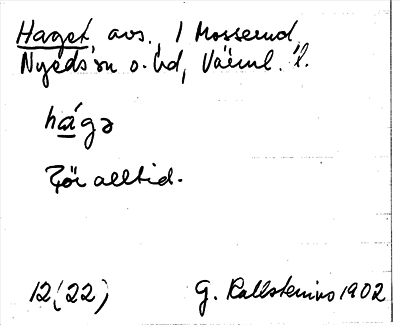 Haget avs., 1 Mosserud,
Nyeds sn o. hd, Värml. l.
hágə
För alltid.
12(22) G. Kallstenius 1902